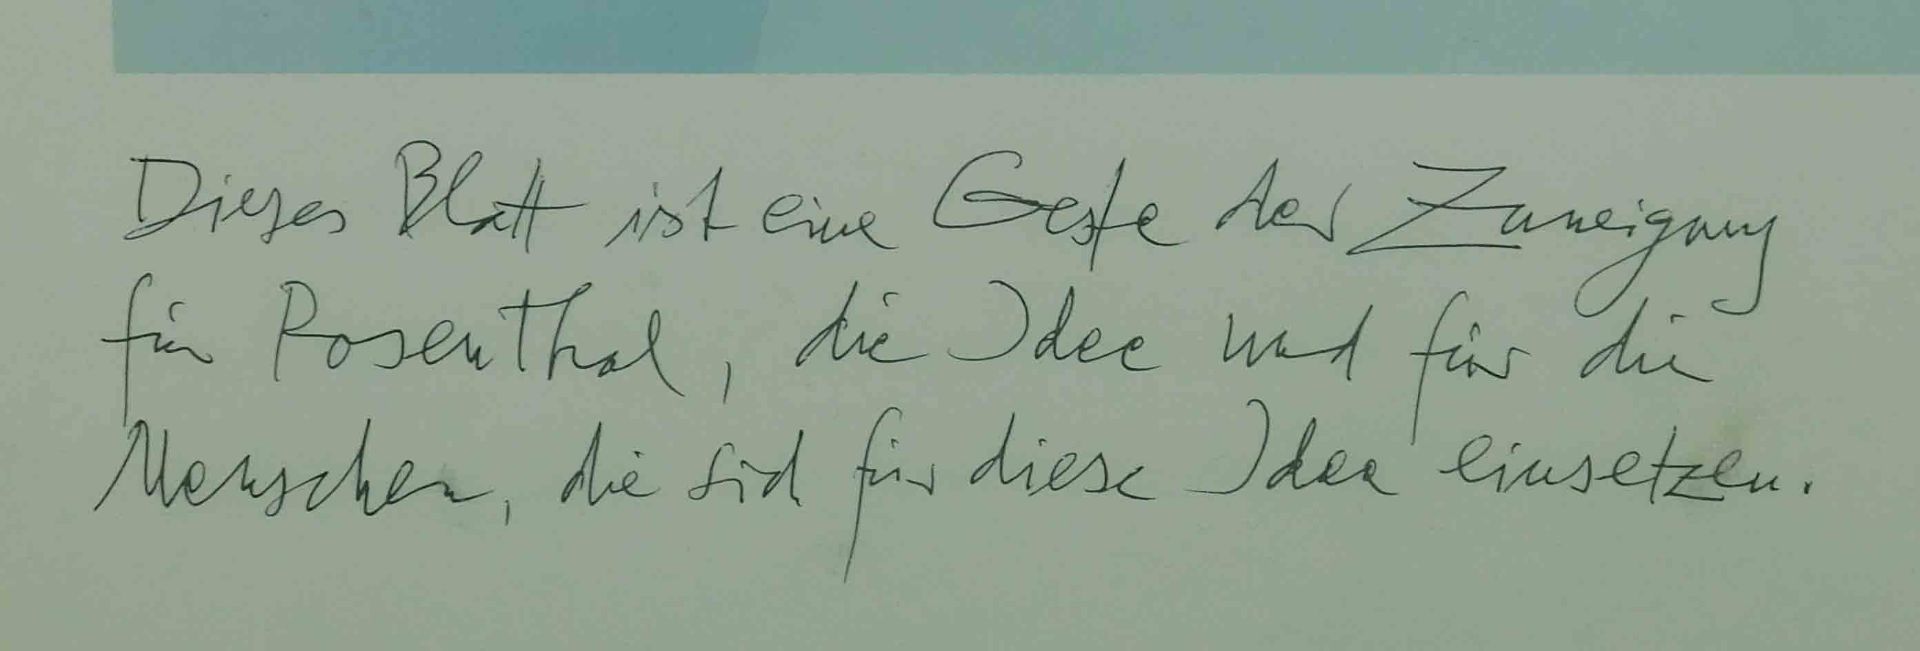 Dieses Blatt ist eine Geste der Zuneigung
für Rosenthal, die Idee und für die
Menschen, die sich für diese Idee einsetzen.